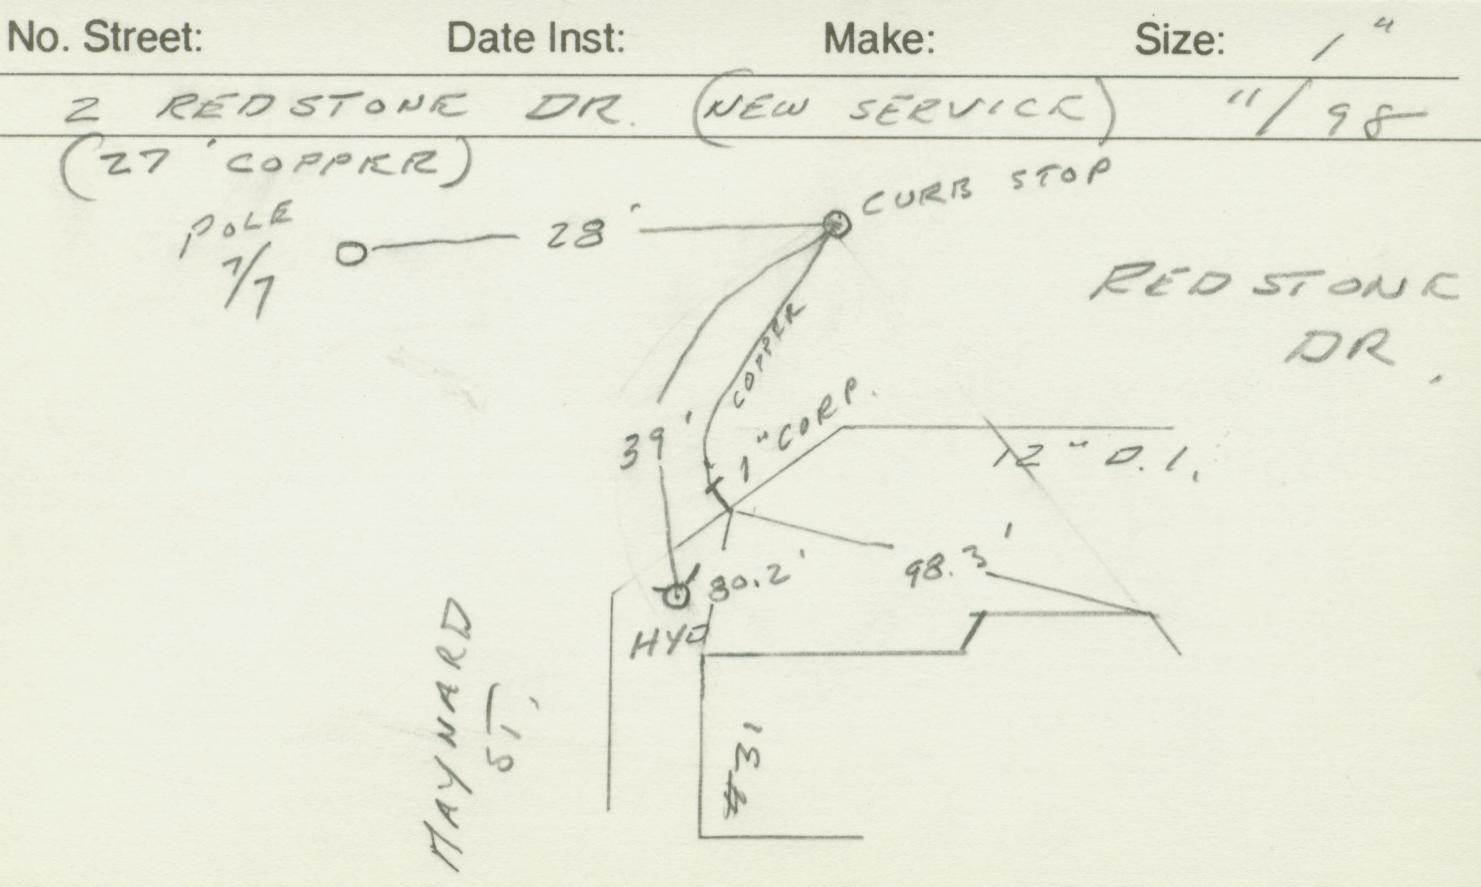 No. Street: Date Inst: Make: Size: 1"
2 REDSTONE DR. (NEW SERVICE) 11/98
(27' COPPER)
CURB STOP
POLE
7/7
28'
REDSTONE
DR.
COPPER
1" CORP.
39'
12" D.I.
98.3'
80.2'
HYD
MAYNARD
ST.
#31